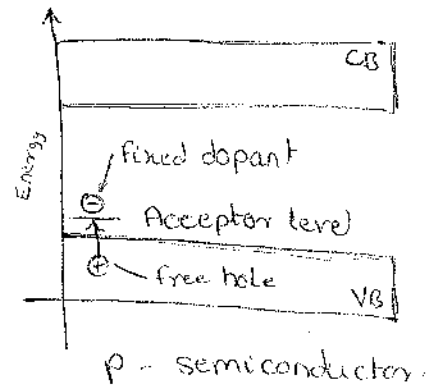 CB
Energy
fixed dopant
⊖
Acceptor level
⊕
free hole
VB
p - semiconductor.